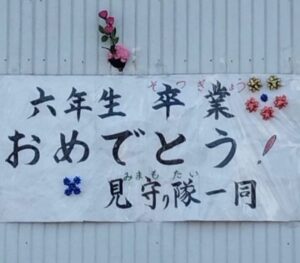 そつぎょう
六年生 卒業
おめでとう!
みまもたい
見守り隊一同